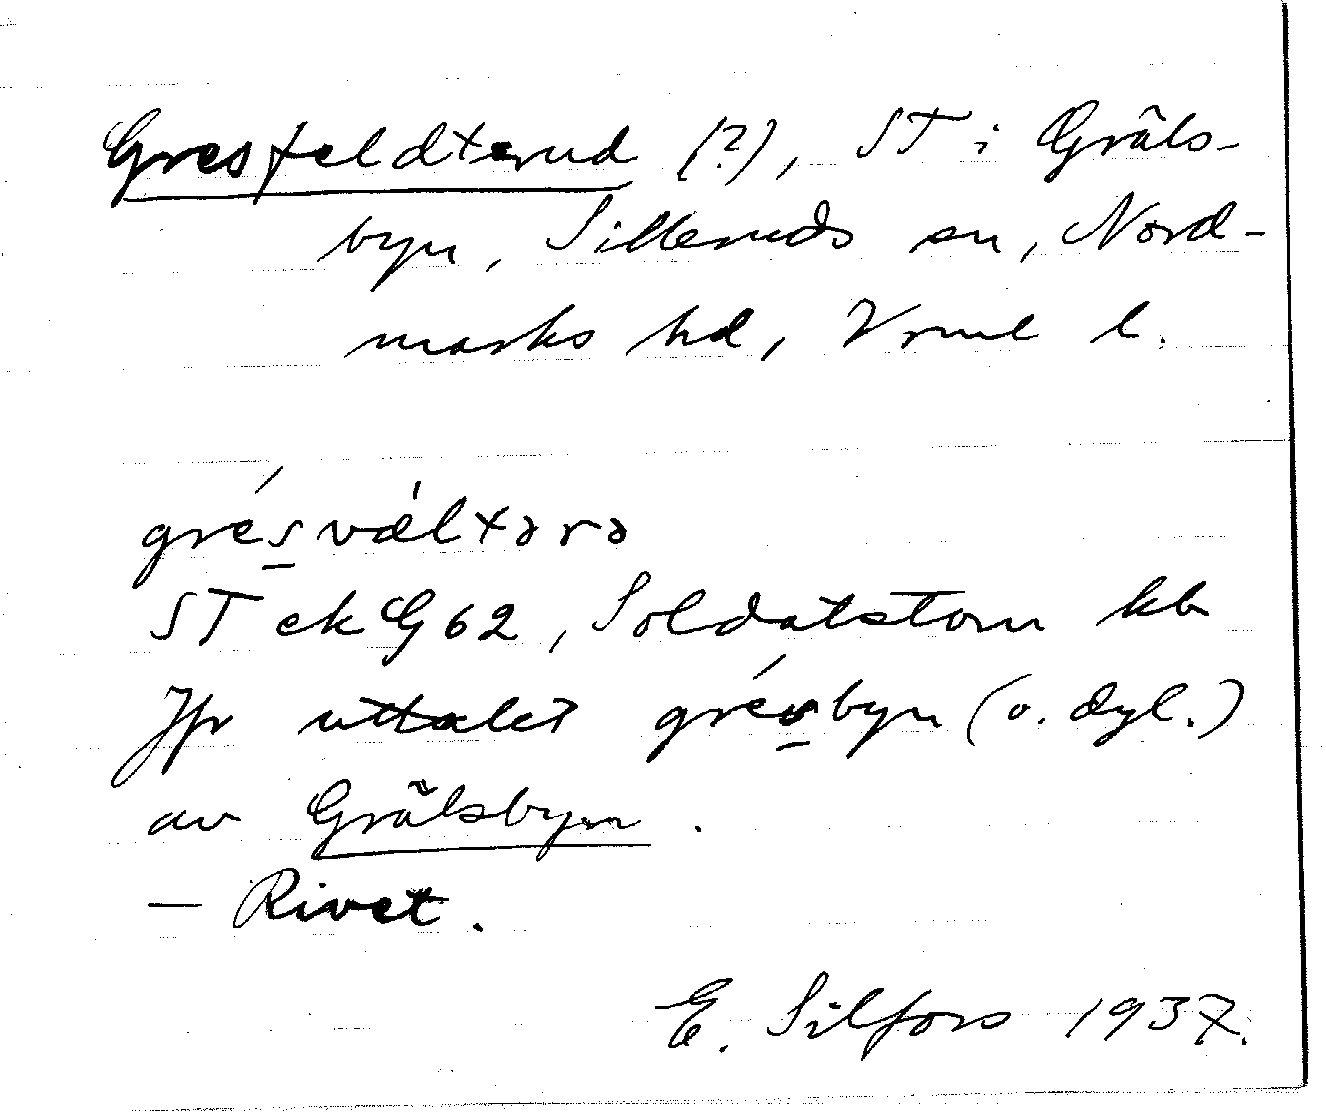 Gresfeldterud (?), ST i Gräls-
byn, Silleruds sn, Nord-
marks hd, Vrml l.
grésvæ̍ltərə
ST ek G62, Soldatstom kb
Jfr uttalet grésbyn (o. dyl.)
av Grälsbyn.
— Rivet.
E. Silfors 1937.